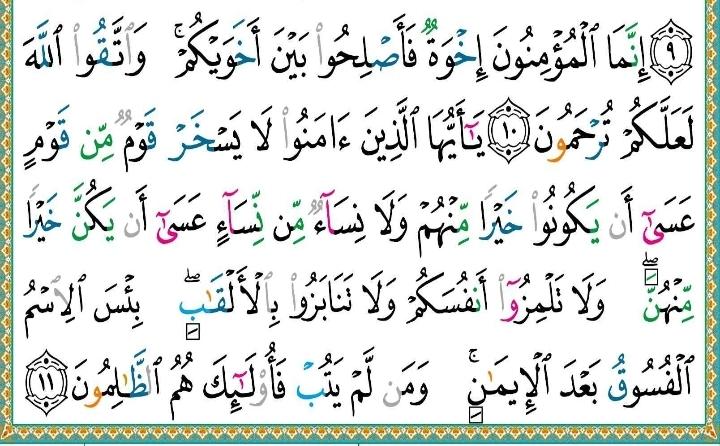 ٩ إِنَّمَا ٱلْمُؤْمِنُونَ إِخْوَةٌ فَأَصْلِحُوا۟ بَيْنَ أَخَوَيْكُمْ ۚ وَٱتَّقُوا۟ ٱللَّهَ
لَعَلَّكُمْ تُرْحَمُونَ ١٠ يَـٰٓأَيُّهَا ٱلَّذِينَ ءَامَنُوا۟ لَا يَسْخَرْ قَوْمٌ مِّن قَوْمٍ
عَسَىٰٓ أَن يَكُونُوا۟ خَيْرًا مِّنْهُمْ وَلَا نِسَآءٌ مِّن نِّسَآءٍ عَسَىٰٓ أَن يَكُنَّ خَيْرًا
مِّنْهُنَّ ۖ وَلَا تَلْمِزُوٓا۟ أَنفُسَكُمْ وَلَا تَنَابَزُوا۟ بِٱلْأَلْقَـٰبِ ۖ بِئْسَ ٱلِٱسْمُ
ٱلْفُسُوقُ بَعْدَ ٱلْإِيمَـٰنِ ۚ وَمَن لَّمْ يَتُبْ فَأُو۟لَـٰٓئِكَ هُمُ ٱلظَّـٰلِمُونَ ١١